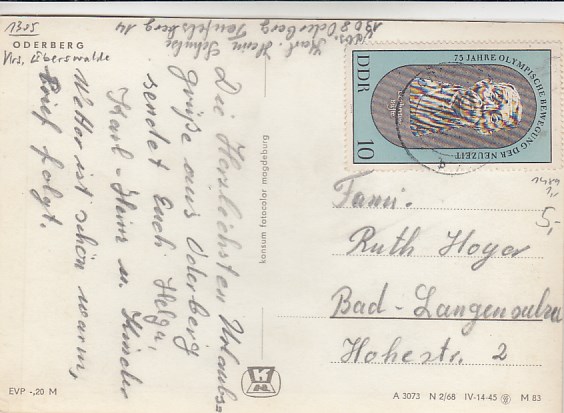 1305
ODERBERG
Krs. Eberswalde
Abs. Karl-Heinz Schulze
1308 Oderberg
Teufelsberg 14
Die Herzlichsten Urlaubs-
grüße aus Oderberg
sendet Euch Helga,
Karl-Heinz u. Kinder
Wetter ist schön warm,
Brief folgt.
konsum fotocolor magdeburg
75 JAHRE OLYMPISCHE BEWEGUNG DER NEUZEIT
DDR
10
5,-
Fam.:
Ruth Hoyer
Bad-Langensalza
Hohestr. 2
EVP -,20 M
A 3073 N 2/68 IV-14-45 M 83